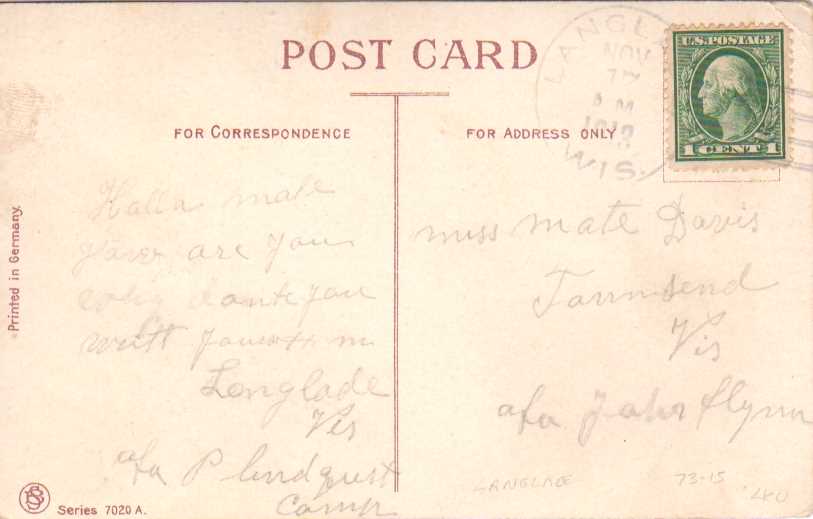 POST CARD
FOR CORRESPONDENCE
FOR ADDRESS ONLY
LANGLA
NOV
17
M
WIS.
U.S. POSTAGE
1 CENT 1
Printed in Germany.
Halla mate
are you
why dont you
Longlade
Vis
P Lindquist
Camp
miss mate Davis
Townsend
Vis
John Flynn
LANGLADE
73-15
LKU
Series 7020 A.